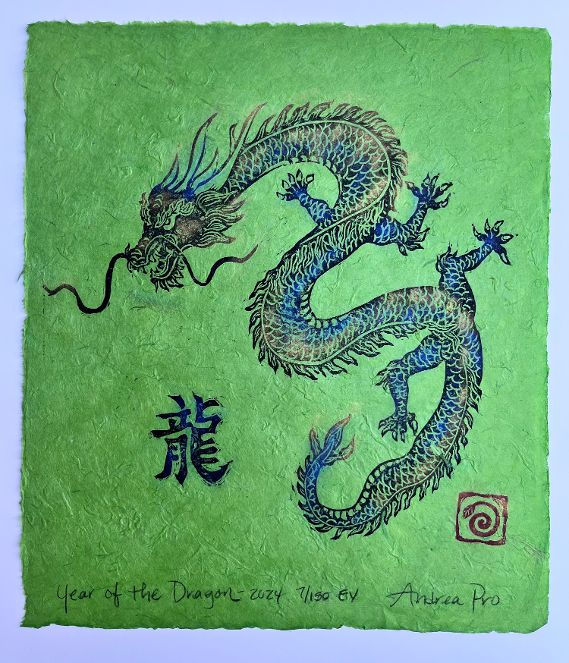 龍
Year of the Dragon - 2024 7/150 EV Andrea Pro